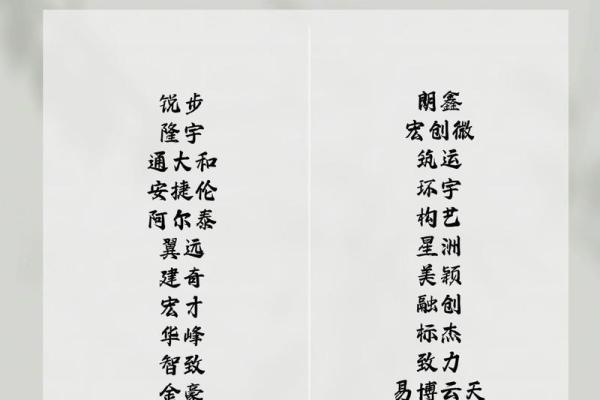 锐步
隆宇
通大和
安捷伦
阿尔泰
翼远
建奇
宏才
华峰
智致
金豪
朗鑫
宏创微
筑运
环宇
构艺
星洲
美颖
融创
标杰
致力
易博云天